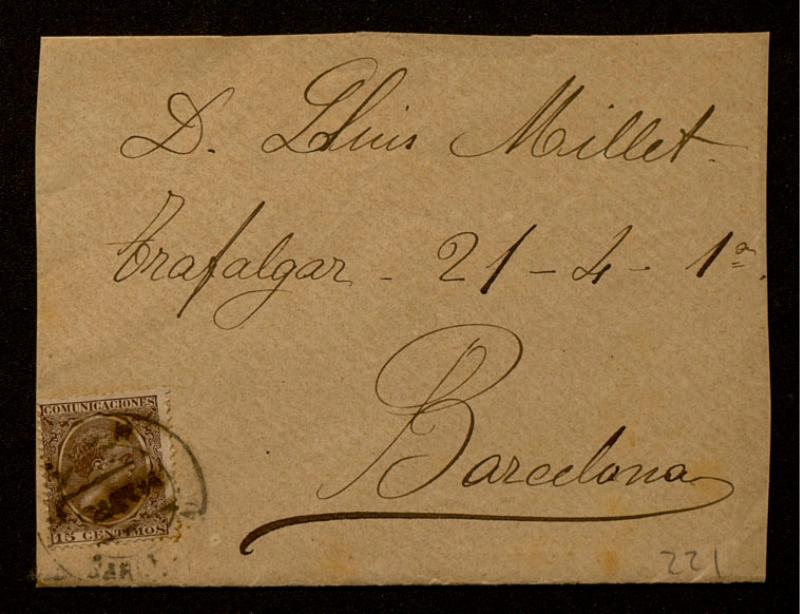 D. Lluis Millet.
Trafalgar - 21 - 4 - 1ª.
Barcelona
COMUNICACIONES
15 CENTIMOS
221